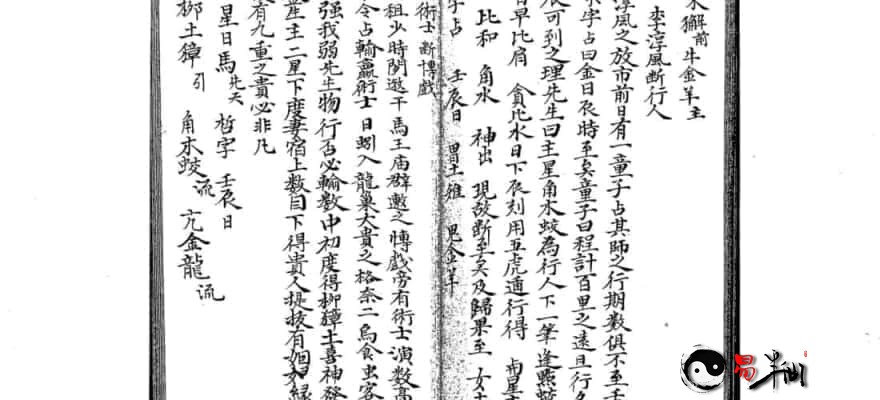 木獬前 牛金羊主
李淳風断行人
淳風之放市前日有一童子占其師之行期数俱不至壬
字占曰金日辰時至矣童子曰程計百里之遠且行
辰可到之理先生曰主星角木蛟為行人下一筆逢熙
首早比肩 貪比水日下辰刻用五虎遁行得
比和 角水 神出 現故断至矣及歸果至 女土
字占 壬辰日 胃土雉 鬼金羊
術士断博戲
祖少時閒遨于馬王庙群邀之慱戲旁有術士演数高
令占輸贏術士曰蚓入龍巢大貴之格奈二烏食虫客
强我弱先生物行否必輸数中初度得柳獐土喜神發
星主二星下度妻宿上数目下得貴人提拔有姻緣
有九重之貴必非凡
星日馬先天 哲字 壬辰日
柳土獐 引 角木蛟 流 亢金龍 流
易半仙